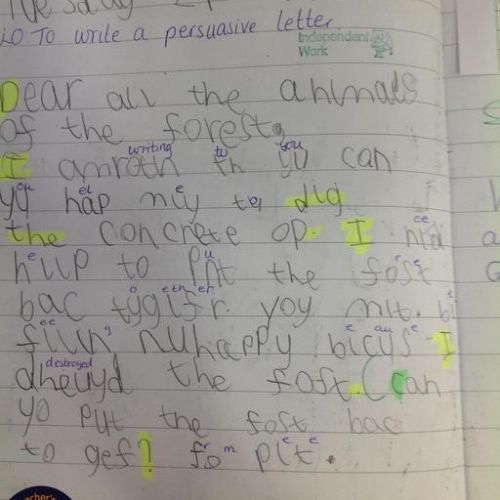 LO To write a persuasive letter.
Independent Work
Dear all the animals
of the forest,
writing to you
I amroth th yu can
yu hap mey to dig
the concrete op. I nid
hellp to put the fost
bac tygifr. yoy mit. bi
fiiln nuhappy bicus I
destroyed
dheuyd the fost. Can
yo put the fost bac
to gef? fom pete.